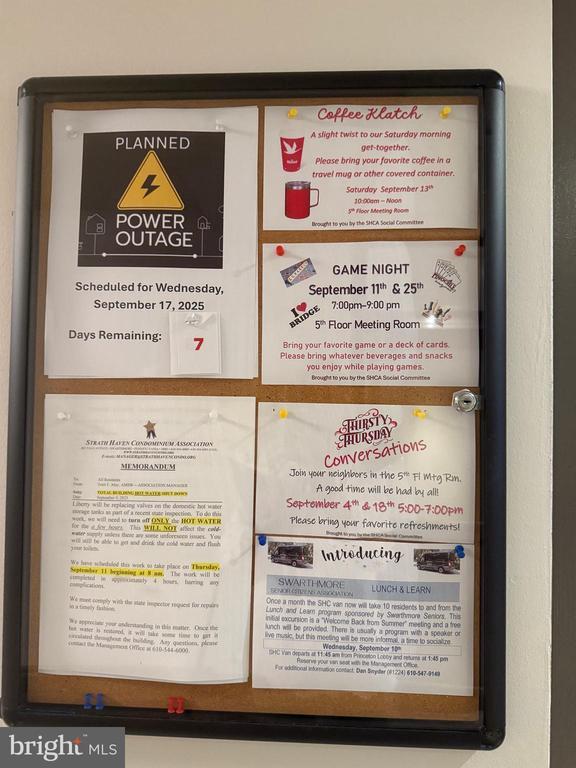 PLANNED
POWER
OUTAGE
Scheduled for Wednesday,
September 17, 2025
Days Remaining:
7
Coffee Klatch
A slight twist to our Saturday morning
get-together.
Please bring your favorite coffee in a
travel mug or other covered container.
Saturday September 13th
10:00am – Noon
5th Floor Meeting Room
Brought to you by the SHCA Social Committee
GAME NIGHT
September 11th & 25th
7:00pm–9:00 pm
I BRIDGE
5th Floor Meeting Room
Bring your favorite game or a deck of cards.
Please bring whatever beverages and snacks
you enjoy while playing games.
Brought to you by the SHCA Social Committee
STRATH HAVEN CONDOMINIUM ASSOCIATION
MEMORANDUM
To: All Residents
ASSOCIATION MANAGER
TOTAL BUILDING HOT WATER SHUT DOWN
Liberty will be replacing valves on the domestic hot water
storage tanks as part of a recent state inspection. To do this
work, we will need to turn off ONLY the HOT WATER
for the a few hours. This WILL NOT affect the cold-
water supply unless there are some unforeseen issues. You
will still be able to get and drink the cold water and flush
your toilets.
We have scheduled this work to take place on Thursday,
September 11 beginning at 8 am. The work will be
completed in approximately 4 hours, barring any
complications.
We must comply with the state inspector request for repairs
in a timely fashion.
We appreciate your understanding in this matter. Once the
hot water is restored, it will take some time to get it
circulated throughout the building. Any questions, please
contact the Management Office at 610-544-6000.
THIRSTY
THURSDAY
Conversations
Join your neighbors in the 5th Fl Mtg Rm.
A good time will be had by all!
September 4th & 18th 5:00-7:00pm
Please bring your favorite refreshments!
Brought to you by the SHCA Social Committee
Introducing
SWARTHMORE
SENIOR CITIZENS ASSOCIATION
LUNCH & LEARN
Once a month the SHC van now will take 10 residents to and from the
Lunch and Learn program sponsored by Swarthmore Seniors. This
initial excursion is a "Welcome Back from Summer" meeting and a free
lunch will be provided. There is usually a program with a speaker or
live music, but this meeting will be more informal, a time to socialize.
Wednesday, September 10th
SHC Van departs at 11:45 am from Princeton Lobby and returns at 1:45 pm
Reserve your van seat with the Management Office.
For additional information contact: Dan Snyder (#1224) 610-547-9149
bright MLS